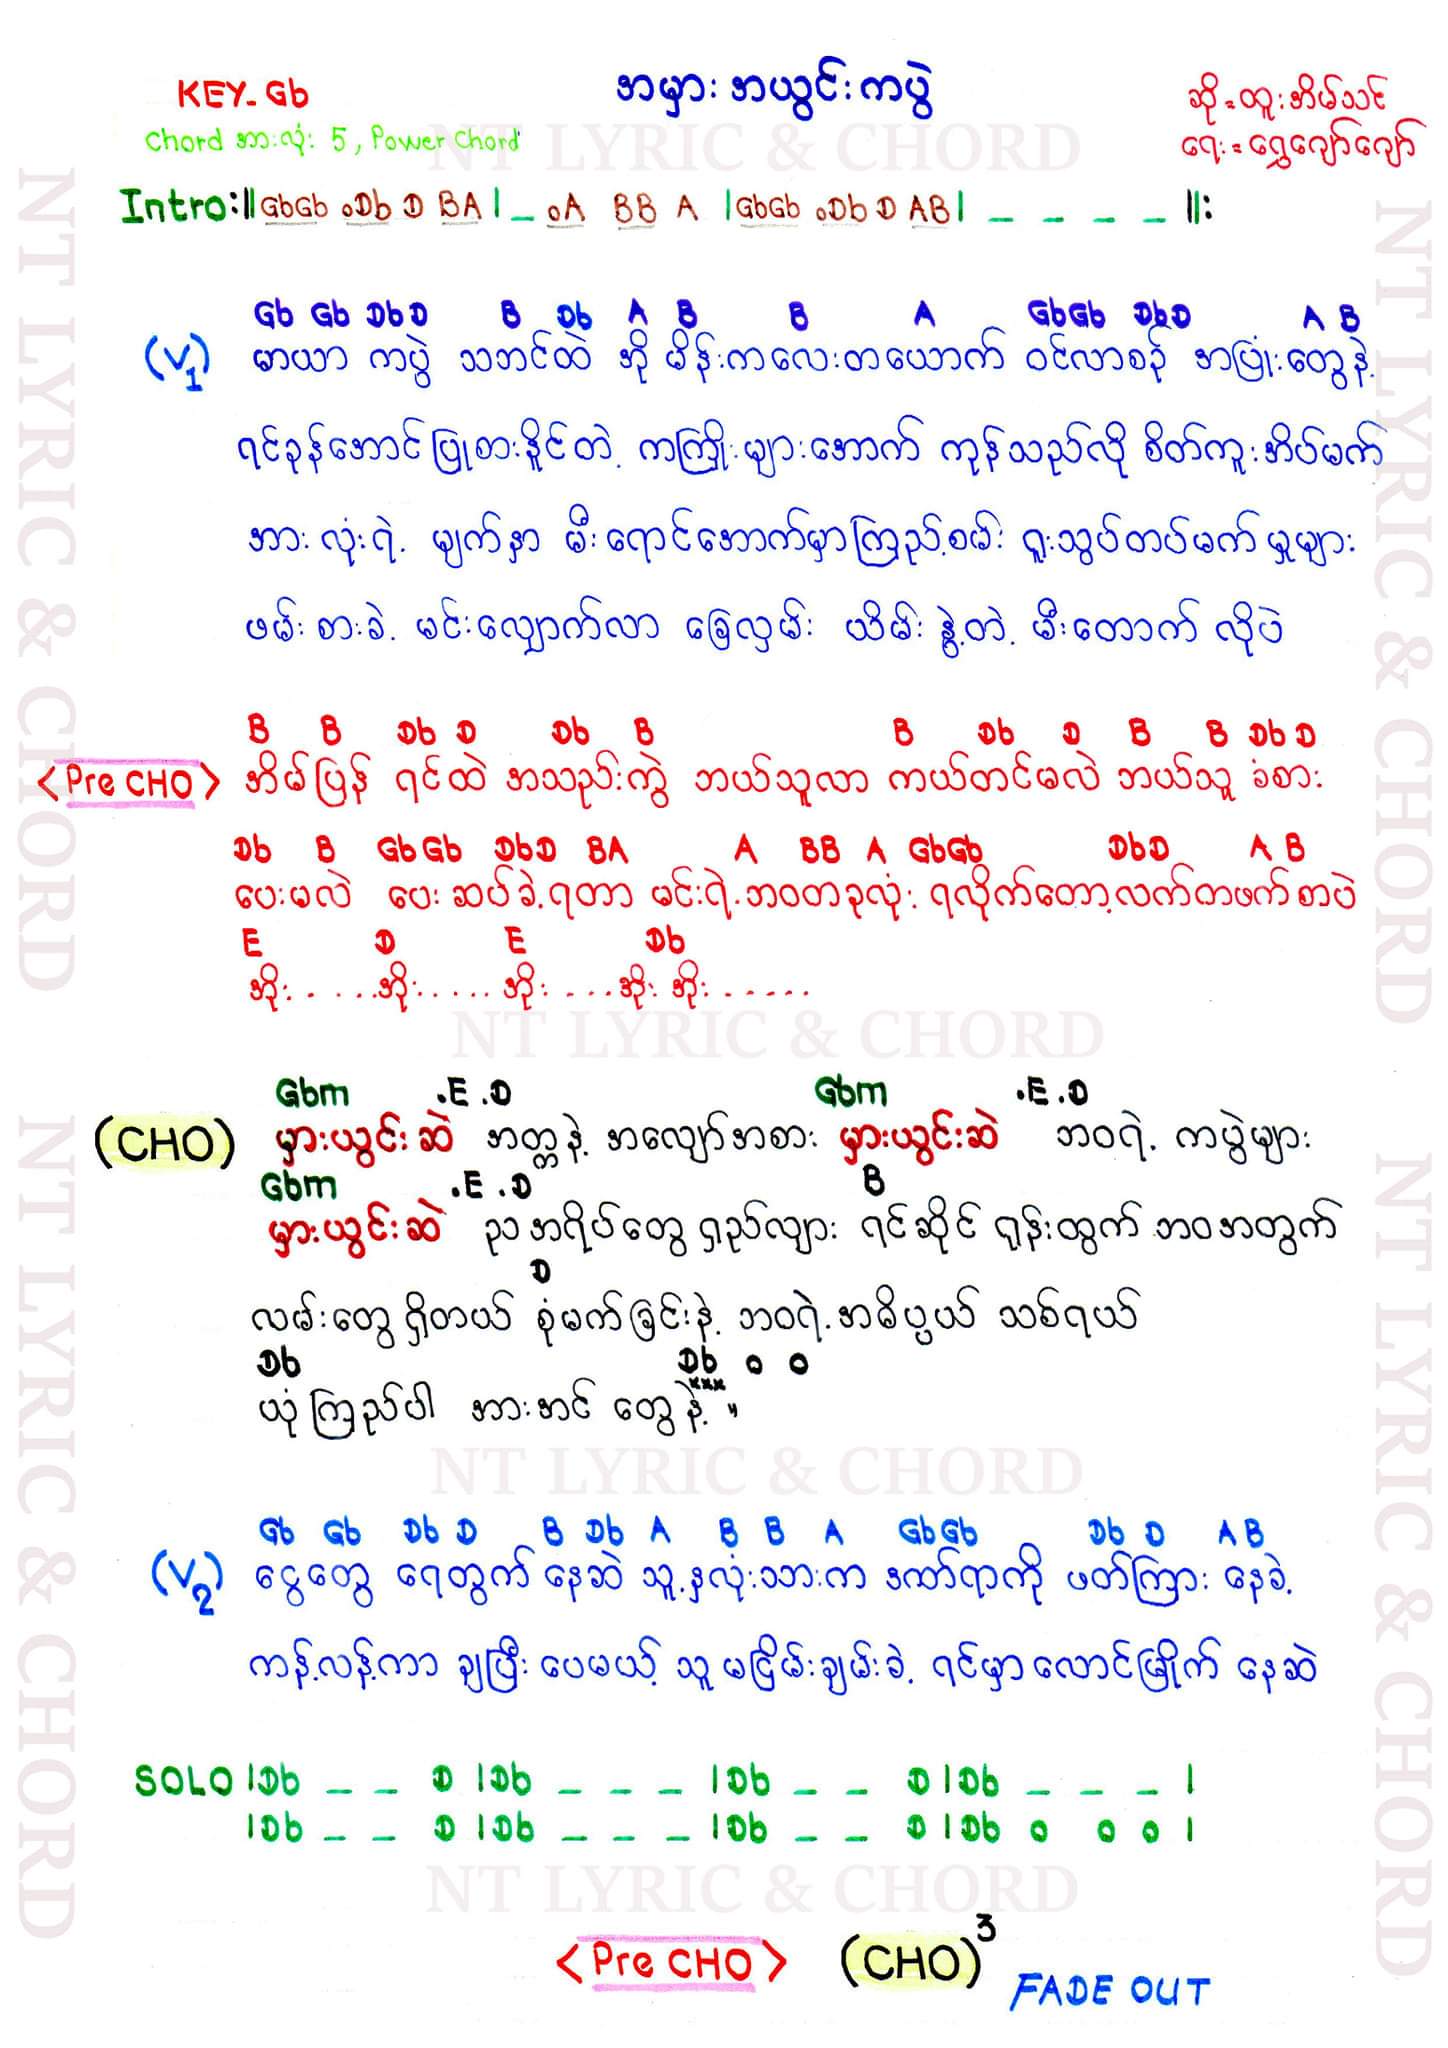 KEY- Gb
အမှား အယွင်း ကပွဲ
ဆို = ထူးအိမ်သင်
Chord အားလုံး 5, Power Chord
ရေး = ရွှေဂျော်ဂျော်
NT LYRIC & CHORD
Intro:|| GbGb oDb D BA | _ oA BB A | GbGb oDb D AB | _ _ _ _ ||:
Gb Gb Db D B Db A B B A GbGb Db D A B
(V1) မာယာ ကပွဲ သဘင်ထဲ အို မိန်းကလေးတယောက် ဝင်လာစဉ် အပြုံးတွေနဲ့
ရင်ခုန်အောင် ပြုစားနိူင်တဲ့ ကကြိုးများအောက် ကုန်သည်လို စိတ်ကူးအိပ်မက်
အားလုံးရဲ့ မျက်နှာ မီးရောင်အောက်မှာကြည့်စမ်း ရူးသွပ်တပ်မက်မှုများ
ဖမ်းစားခဲ့ မင်းလျှောက်လာ ခြေလှမ်း ယိမ်းနွဲ့တဲ့ မီးတောက်လိုပဲ
B B Db D Db B B Db D B B Db D
<Pre CHO> အိမ်ပြန် ရင်ထဲ အသည်းကွဲ ဘယ်သူလာ ကယ်တင်မလဲ ဘယ်သူ ခံစား
Db B GbGb DbD BA A BB A GbGb DbD A B
ပေးမလဲ ပေးဆပ်ခဲ့ရတာ မင်းရဲ့ဘဝတခုလုံး ရလိုက်တော့လက်တဖက်စာပဲ
E D E Db
အိုး.....အိုး.....အိုး....အိုး အိုး......
NT LYRIC & CHORD
Gbm .E .D Gbm .E .D
(CHO) မှားယွင်းဆဲ အတ္တနဲ့ အလျော်အစား မှားယွင်းဆဲ ဘဝရဲ့ ကပွဲများ
Gbm .E .D B
မှားယွင်းဆဲ ညအရိပ်တွေ ရှည်လျား ရင်ဆိုင် ရုန်းထွက် ဘဝအတွက်
D
လမ်းတွေရှိတယ် စုံမက်ခြင်းနဲ့ ဘဝရဲ့အဓိပ္ပယ် သစ်ရယ်
Db Db o o
xxx
ယုံကြည်ပါ အားအင် တွေနဲ့ "
NT LYRIC & CHORD
Gb Gb Db D B Db A B B A GbGb Db D A B
(V2) ငွေတွေ ရေတွက် နေဆဲ သူ့နှလုံးသားက ဒဏ်ရာကို ဖတ်ကြား နေခဲ့
ကန့်လန့်ကာ ချပြီး ပေမယ့် သူ မငြိမ်းချမ်းခဲ့ ရင်မှာလောင်မြိုက် နေဆဲ
SOLO |Db _ _ D |Db _ _ _ |Db _ _ D |Db _ _ _ |
|Db _ _ D |Db _ _ _ |Db _ _ D |Db o o o |
NT LYRIC & CHORD
<Pre CHO> (CHO)3
FADE OUT
NT LYRIC & CHORD
NT LYRIC & CHORD
NT LYRIC & CHORD
NT LYRIC & CHORD